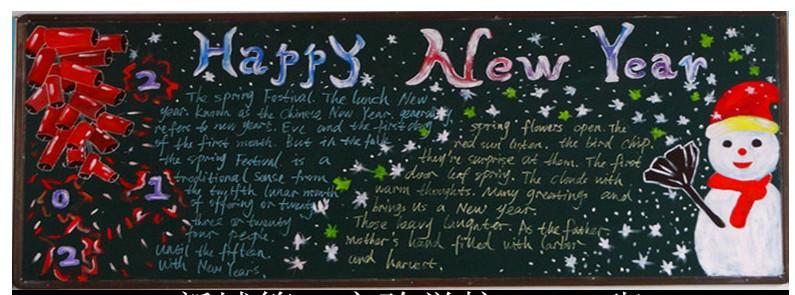 Happy New Year
2
0
1
2
The spring Festival. The lunch New
year known as the Chinese New Year, generally
refers to new years. Eve and the first day
of the first month. But in the folk
the spring Festival is a
traditional sense from
the twelfth lunar month
of offering or twenty
three or twenty
four people
until the fifteen
with New Years.
spring flowers open. The
red sun listen, the bird chip.
they're surprise at them. The first
door leaf spring. The clouds with
warm thoughts. Many greetings and
brings us a New year.
Those heavy laughter. As the father
mother's hand filled with labor
and harvest.